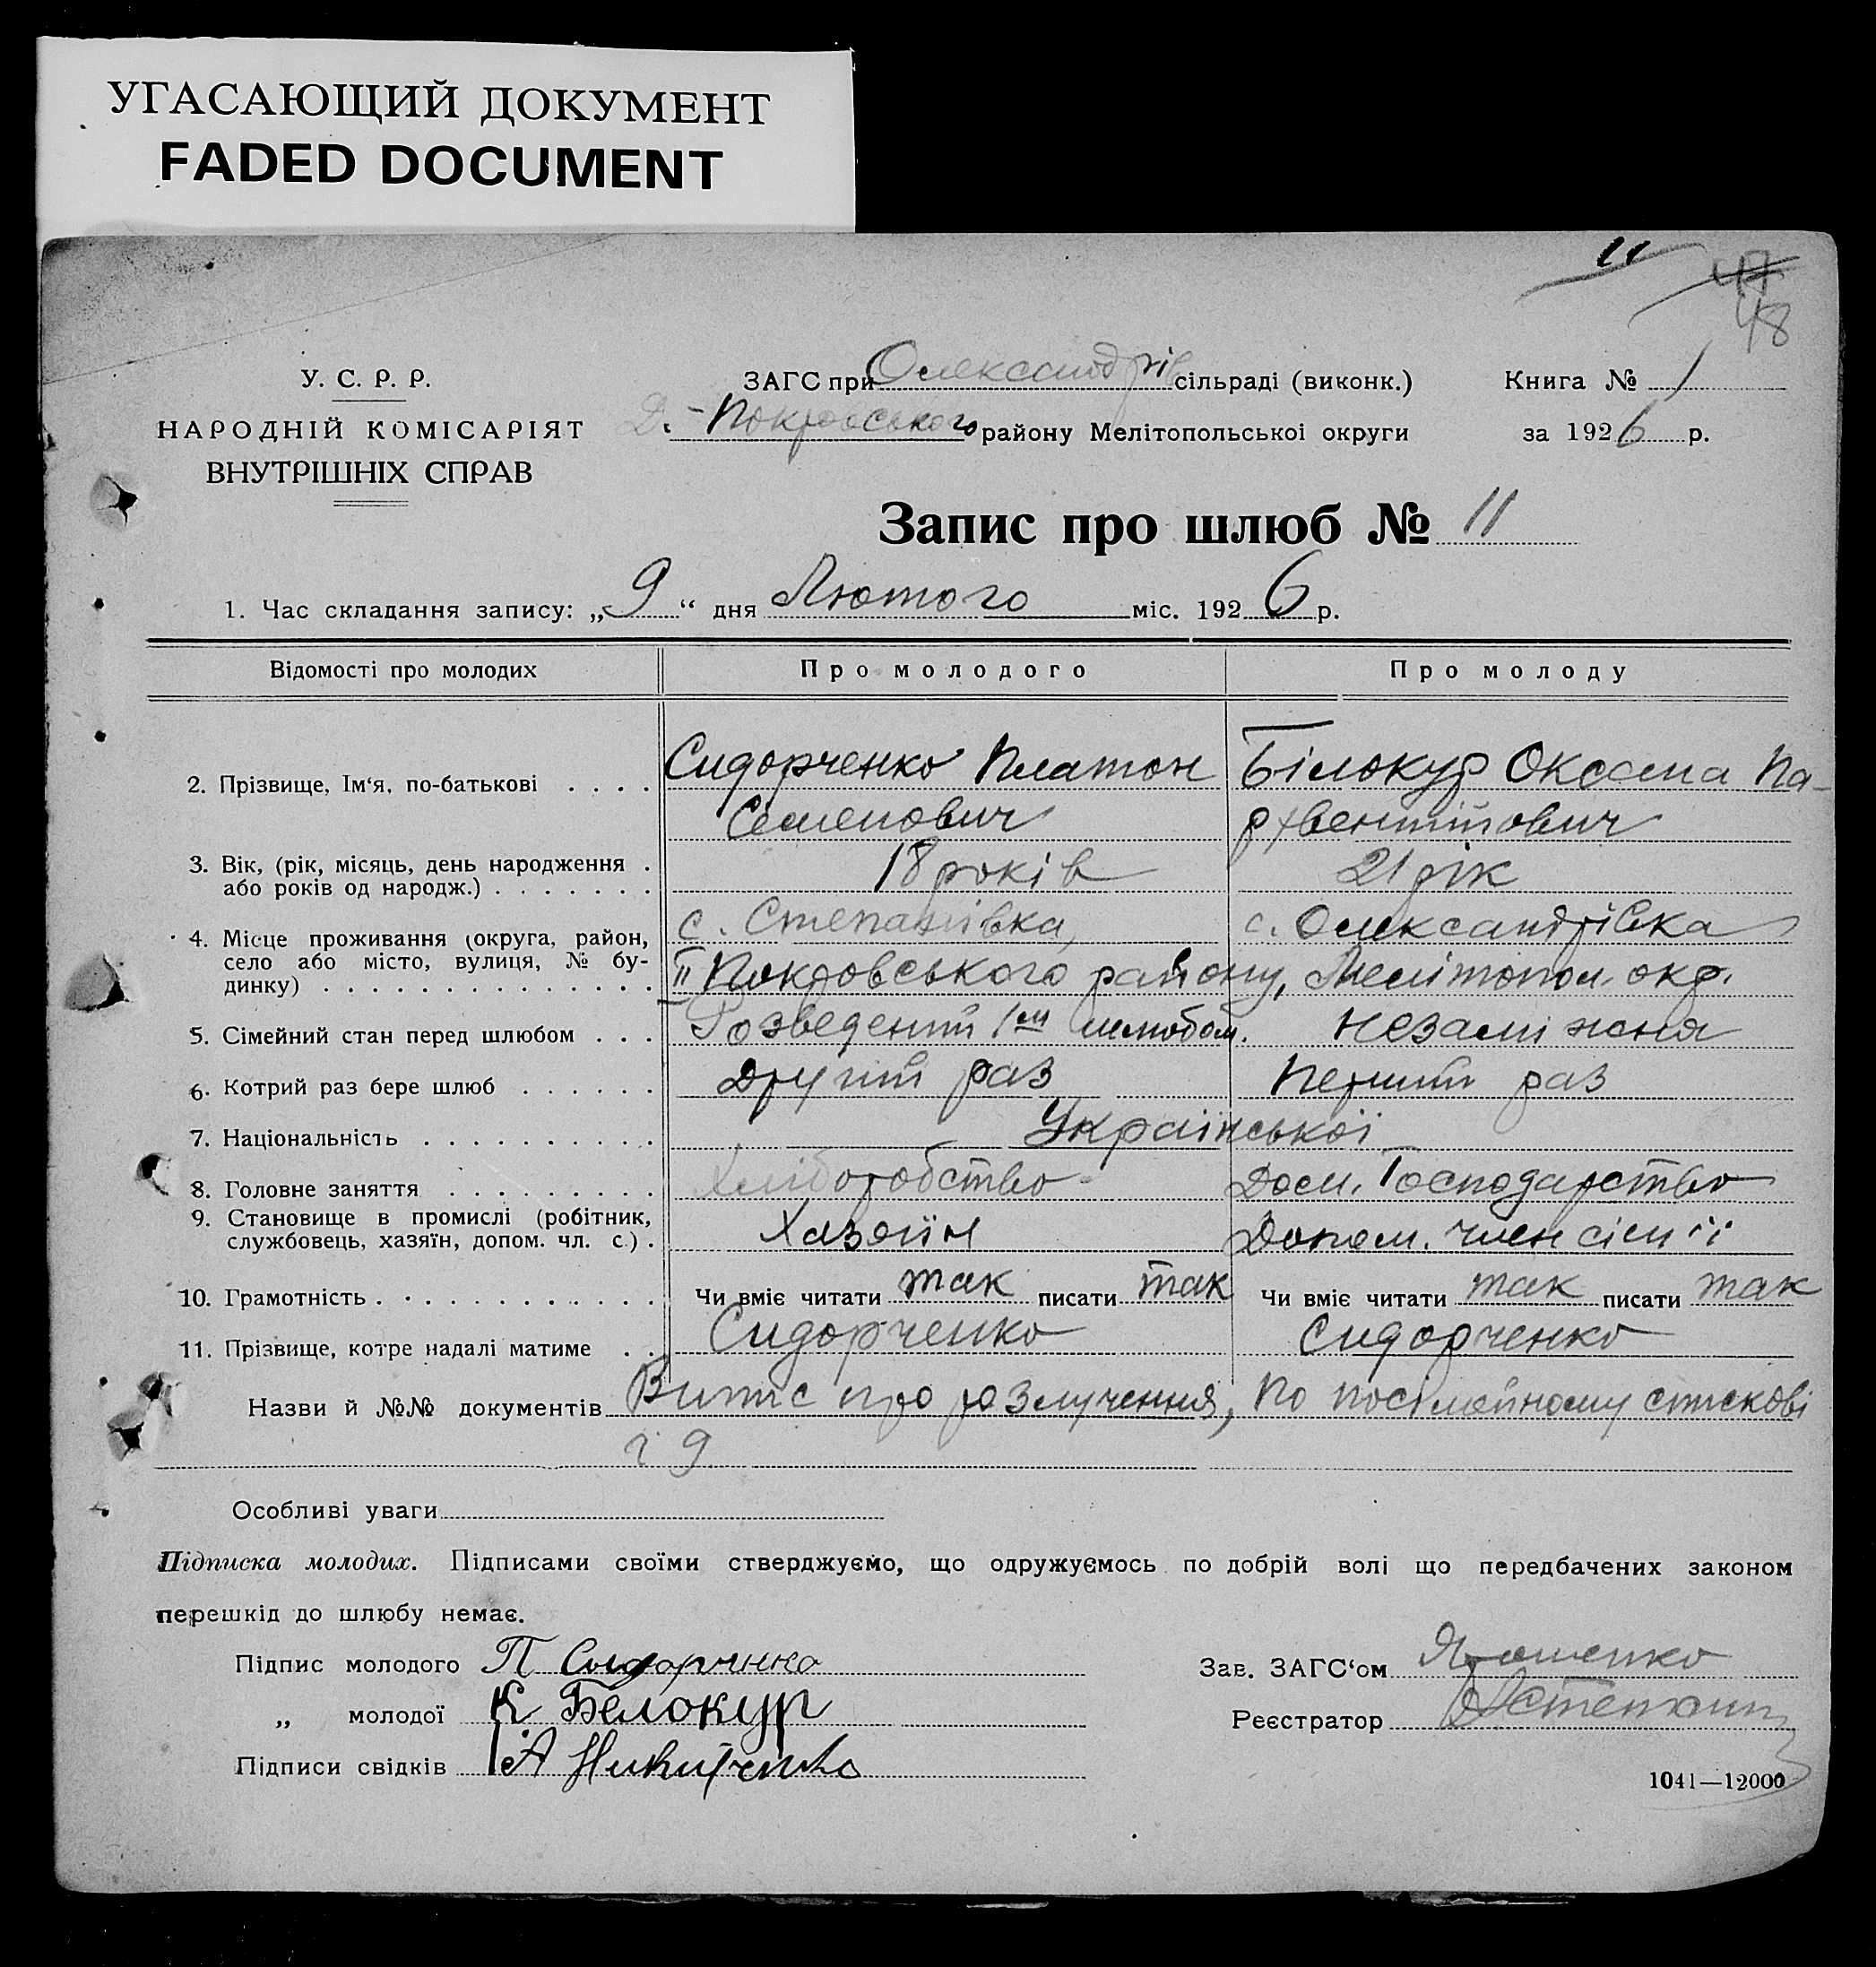 УГАСАЮЩИЙ ДОКУМЕНТ
FADED DOCUMENT
11
47
48
У. С. Р. Р.
НАРОДНІЙ КОМІСАРІЯТ
ВНУТРІШНІХ СПРАВ
ЗАГС при Олександрів сільраді (виконк.)
Покровського району Мелітопольськоі округи
Книга № 1
за 1926 р.
Запис про шлюб № 11
1. Час складання запису: „9“ дня Лютого міс. 1926 р.
Відомості про молодих Про молодого Про молоду
2. Прізвище, Ім‘я, по-батькові Сидорченко Платон Білокур Оксана Па-
Семенович
3. Вік, (рік, місяць, день народження 18 років 21 рік
або років од народж.)
4. Місце проживання (округа, район, с. Степанівка, с. Олександрівка
село або місто, вулиця, № бу- Покровського району, Мелітопол. окр.
динку)
5. Сімейний стан перед шлюбом Розведений 1м шлюбом. Незаміжня
6. Котрий раз бере шлюб Другий раз Перший раз
7. Національність Української
8. Головне заняття Хліборобство Дом. Господарство
9. Становище в промислі (робітник, Хазяїн Допом. член сім'ї
службовець, хазяїн, допом. чл. с.)
10. Грамотність Чи вміє читати так писати так Чи вміє читати так писати так
11. Прізвище, котре надалі матиме Сидорченко Сидорченко
Назви й №№ документів Випис про розлучення, по посімейному спискові
Особливі уваги
Підписка молодих. Підписами своїми стверджуємо, що одружуємось по добрій волі що передбачених законом
перешкід до шлюбу немає.
Підпис молодого П Сидорченко
„ молодої К. Белокур
Підписи свідків 1. А Никитченко
Зав. ЗАГС‘ом
Реєстратор
1041—12000